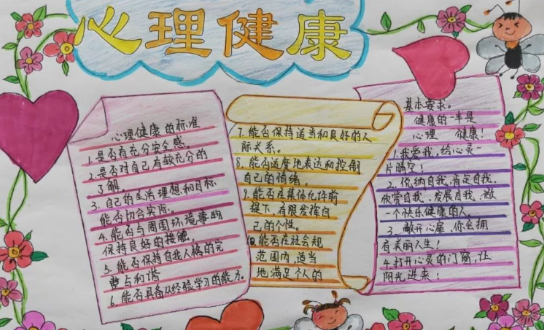 心理健康
心理健康的标准
1.是否有充分安全感。
2.是否对自己有较充分的
了解。
3.自己的生活理想和目标
能否切合实际。
4.能否与周围环境事物
保持良好的接触。
5.能否保持自我人格的完
整与和谐
6.能否具备从经验学习的能力。
7.能否保持适当和良好的人
际关系。
8.能否适度地表达和控制
自己的情绪。
9.能否在集体允许前
提下,有限发挥自
己的个性。
10.能否在社会规
范围内,适当
地满足个人的
基本要求。
健康的一半是
心理 健康!
1.我爱我,给心灵一
片晴空!
2.悦纳自我,肯定自我,
欣赏自我、发展自我,做
一个快乐健康的人。
3.敞开心扉,你会拥
有美丽人生!
4.打开心灵的门窗,让
阳光进来!